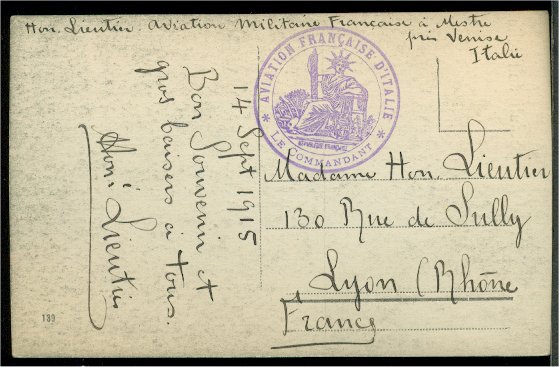 Hon. Lieutier. Aviation Militaire Française à Mestre
près Venise
Italie
AVIATION FRANÇAISE D'ITALIE
RÉPUBLIQUE FRANÇAISE
* LE COMMANDANT *
14 Sept 1915
Bon Souvenir et
gros baisers à tous.
Honi Lieutier
Madame Hon. Lieutier
130 Rue de Sully
Lyon (Rhône
France
139